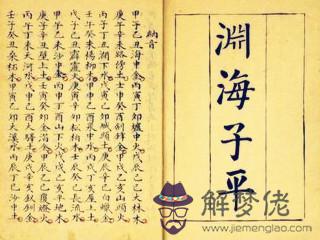 淵海子平
納音
甲子乙丑海中金丙寅丁卯爐中火戊辰己巳大林木
庚午辛未路傍土壬申癸酉劍鋒金甲戌乙亥山頭火
丙子丁丑澗下水戊寅己卯城頭土庚辰辛巳白蠟金
壬午癸未楊柳木甲申乙酉泉中水丙戌丁亥屋上土
戊子己丑霹靂火庚寅辛卯松柏木壬辰癸巳長流水
甲午乙未沙中金丙申丁酉山下火戊戌己亥平地木
庚子辛丑壁上土壬寅癸卯金箔金甲辰乙巳覆燈火
丙午丁未天河水戊申己酉大驛土庚戌辛亥釵釧金
壬子癸丑桑柘木甲寅乙卯大溪水丙辰丁巳沙中土
解梦佬
www.jiemenglao.com/